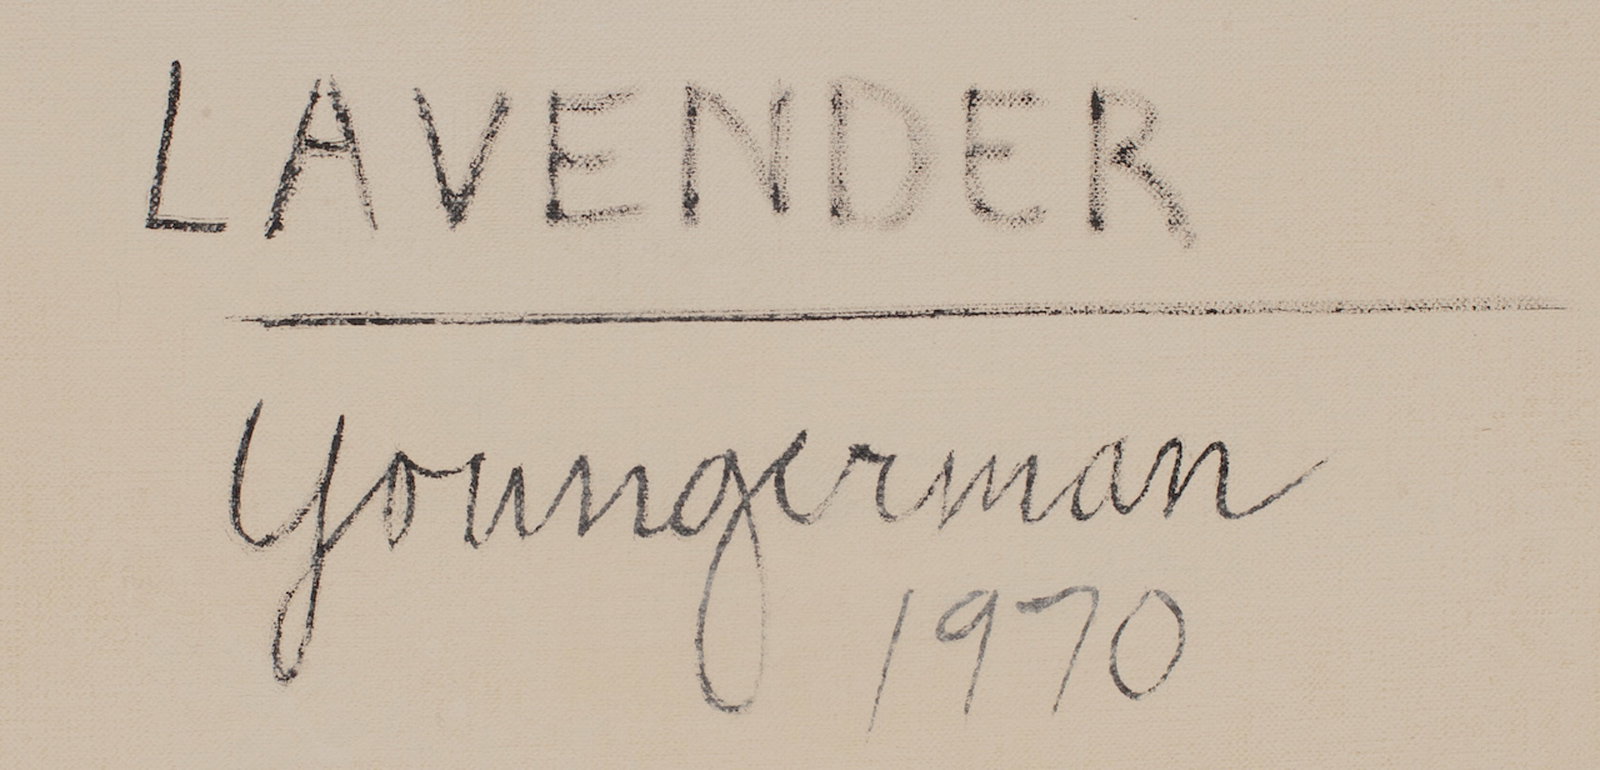 LAVENDER
Youngerman
1970